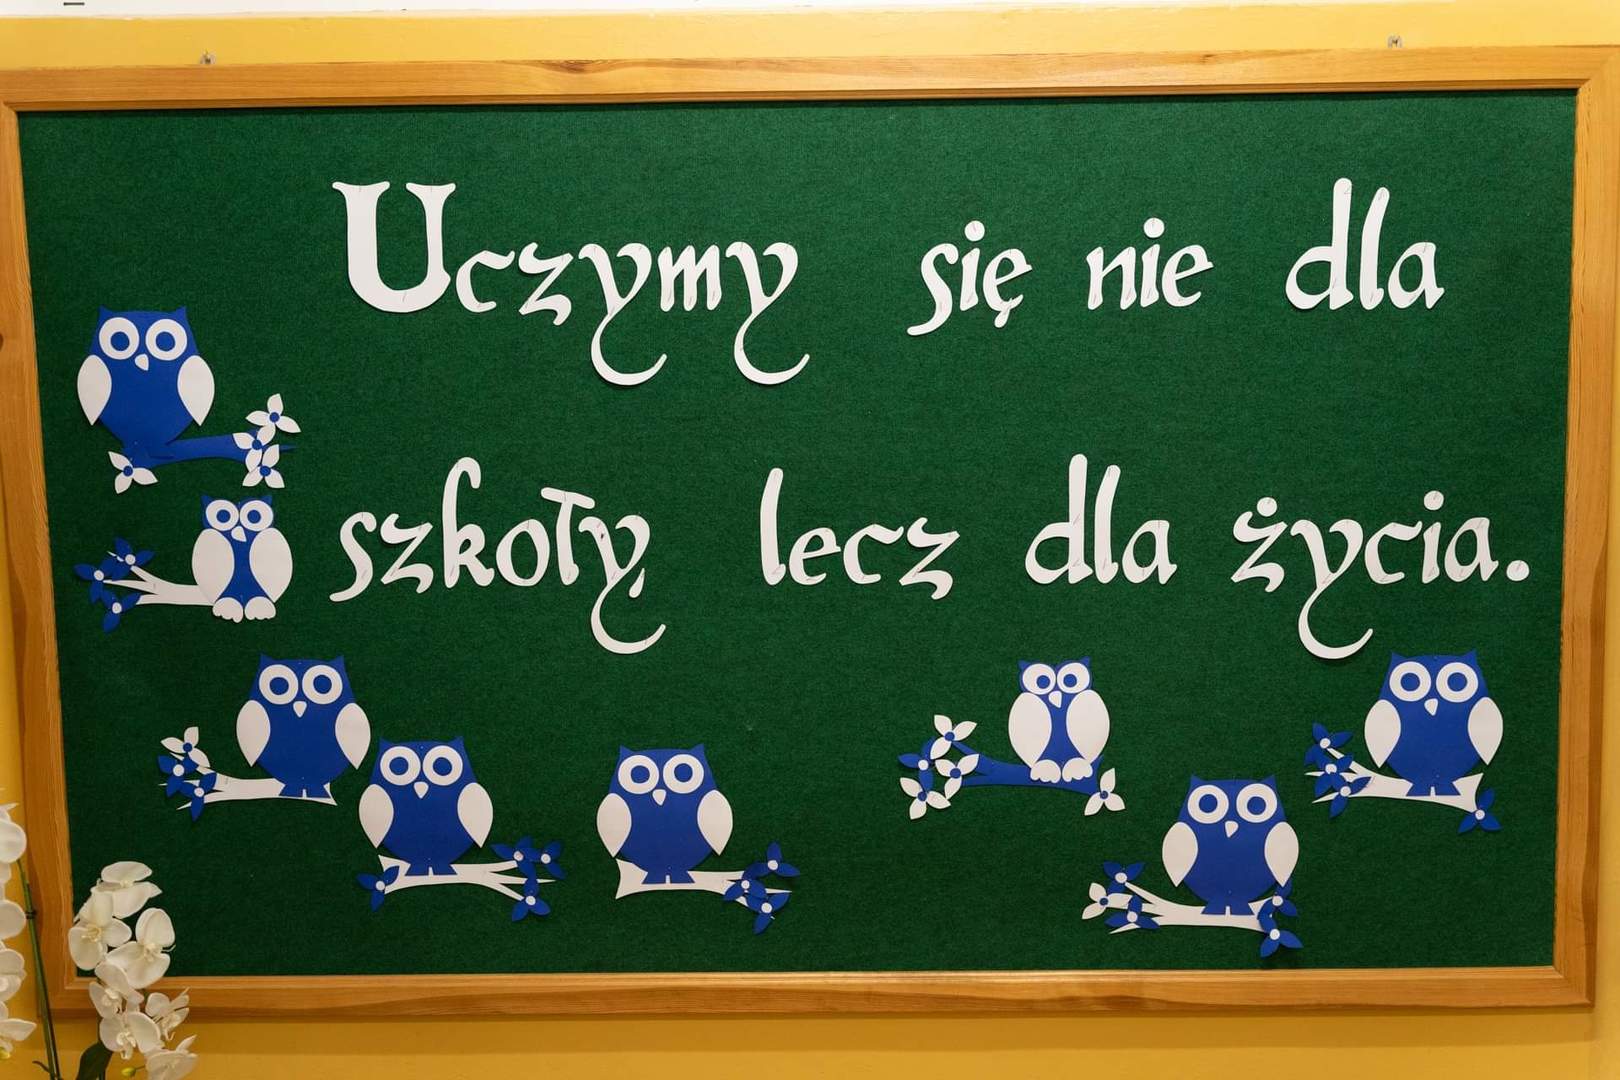 Uczymy się nie dla
szkoły, lecz dla życia.